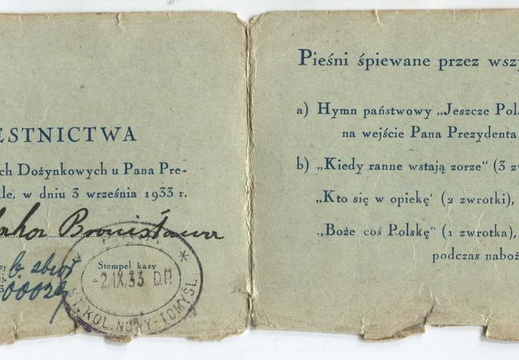 ESTNICTWA
ch Dożynkowych u Pana Pre-
le, w dniu 3 września 1933 r.
Bronisława
Stempel kasy
-2.IX.33 D.P.
ST. KOL. NOWY-TOMYŚL
Pieśni śpiewane przez wszy
a) Hymn państwowy „Jeszcze Pol
na wejście Pana Prezydenta
b) „Kiedy ranne wstają zorze“ (3 z
„Kto się w opiekę‘ (2 zwrotki),
„Boże coś Polskę“ (1 zwrotka),
podczas naboż